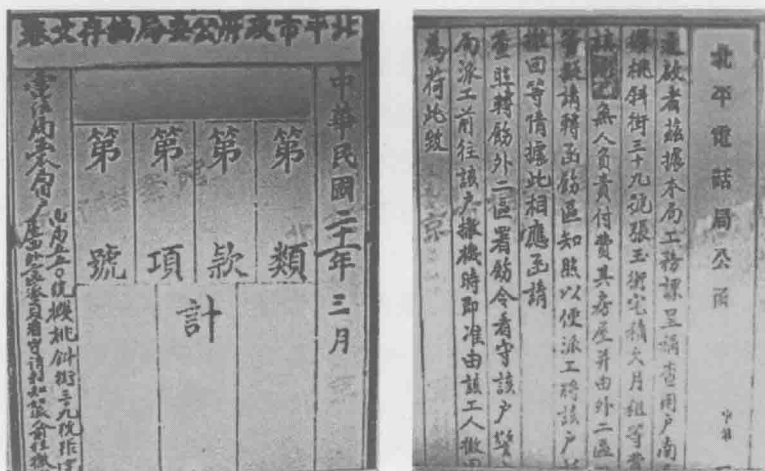 北平市政府公安局編存文卷
中華民國二十一年三月
第類
第款
第項
第號
計
電話局函本局用戶
南局五五〇號櫻桃斜街三十九號張宅
北平電話局公函
逕啟者茲據本局工務課呈稱查用戶南
櫻桃斜街三十九號張玉衡宅積欠月租等費
無人負責付費其房屋并由外二區
管擬請轉函飭區知照以便派工將該戶
撤回等情據此相應函請
查照轉飭外二區署飭令看守該戶警
局派工前往該戶撤機時即准由該工人撤
為荷此致